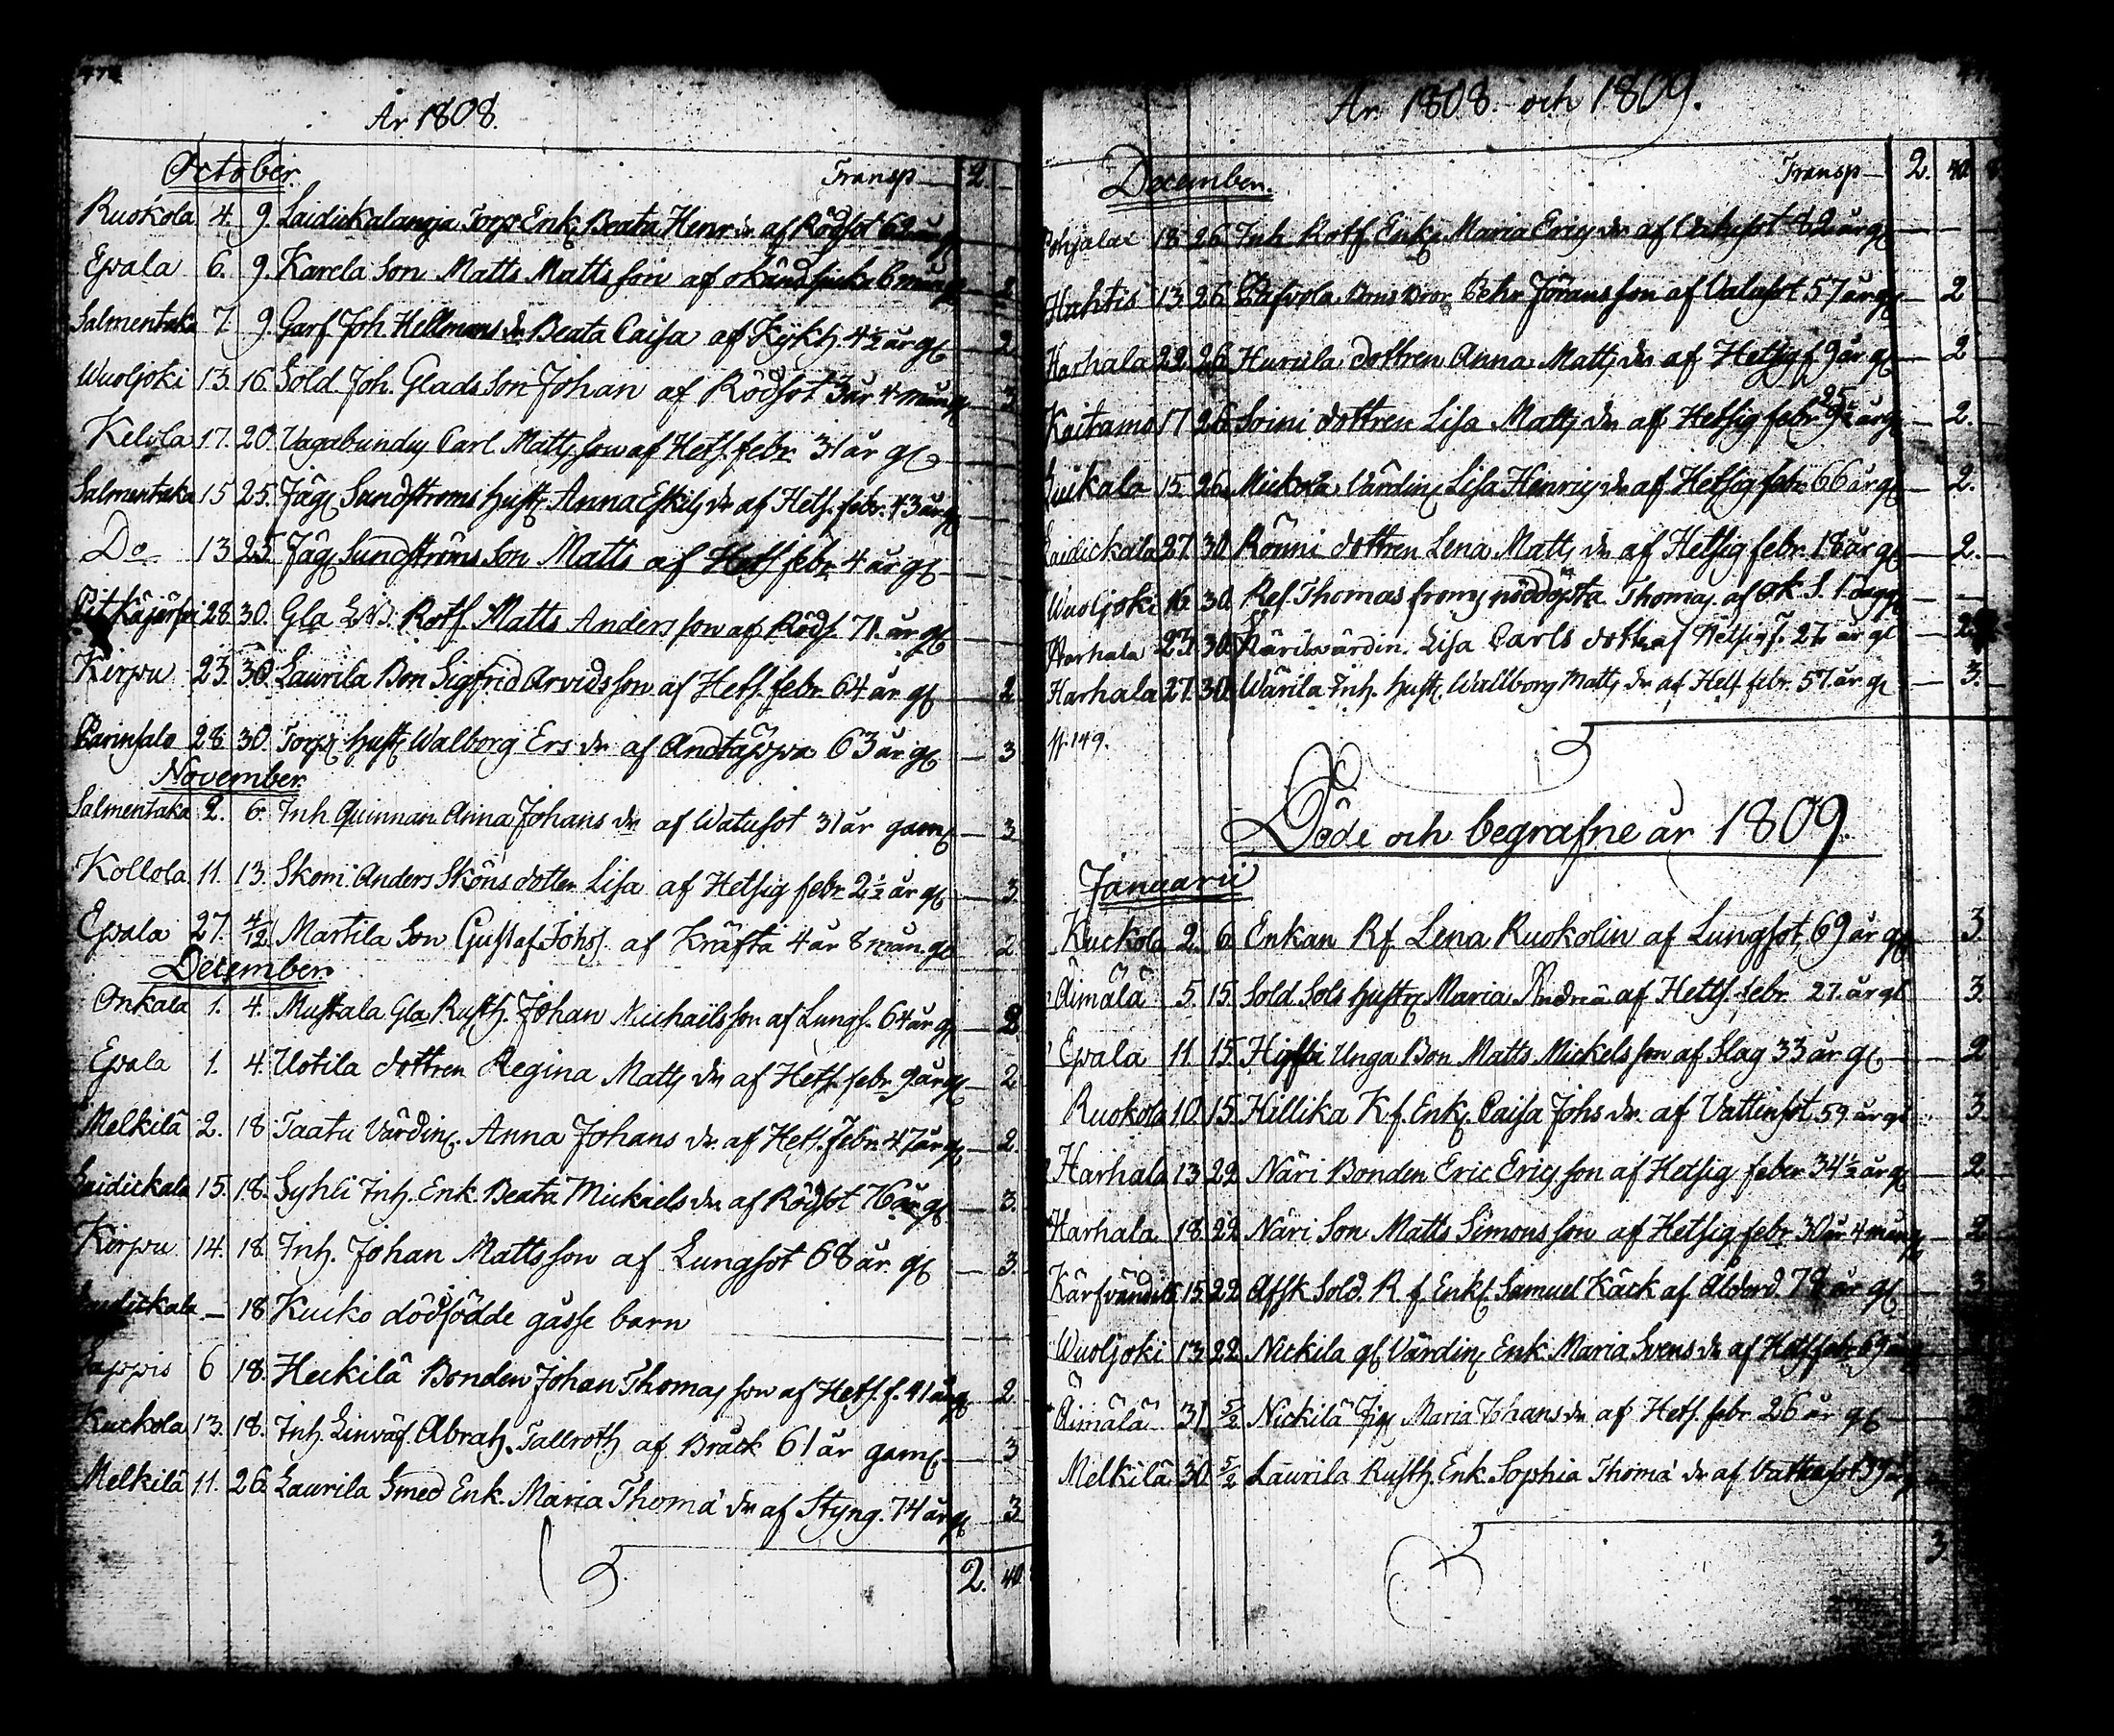 År 1808.
October. Transp — 2. —
Ruokola 4. 9. Laidickalanoja Torp Enk. Beata Henr. dr af Rödsot 62 år
Epala 6. 9. Karela Son Matts Mattsson af okänd sjuka 6 mån — 2
Salmentaka 7. 9. Garf. Joh. Hellmans dr Beata Caisa af Kykh. 4½ år gl — 2
Wuoljoki 13. 16. Sold. Joh. Glads Son Johan af Rödsot 3 år 4 mån g — 3
Kelvola 17. 20. Vagabundus Carl Matts son af Hets. febr. 31 år gl
Salmentaka 15 25. Jäg. Sundströms hust. Anna Eskils dr af Hets. febr. 43 år g
Do 13 25. Jäg. Sundströms Son Matts af Hets febr. 4 år gl
Pitkäjärfvi 28. 30. Gla Rotf. Matts Andersson af Röds. 71. år gl
Kirpu 23. 30. Laurila Bon Sigfrid Arvidsson af Hets. febr. 64 år gl — 2
Parinsalo 28. 30. Torp. hust. Walborg Ers dr af Andtäppa 63 år gl — 3
November.
Salmentaka 2. 6. Inh. Quinnan Anna Johans dr af Watusot 31 år gam — 3
Kollola 11. 13. Skom. Anders Sköns dotter Lisa af Hetsig febr 2½ år gl — 3
Epala 27. 4/12 Martila Son Gustaf Johs s. af Kräfta 4 år 8 mån. gl 2
December.
Onkala 1. 4. Mustala Gla Rusth. Johan Michailsson af Lungs. 64 år g — 2
Epala 1. 4. Uotila dottren Regina Matts dr af Hets. febr. 9 år g — 2
Melkilä 2. 18. Taatu Värdin. Anna Johans dr af Hets. febr. 47 år g — 2.
Laidickala 15. 18. Syhli Inh. Enk. Beata Mickaels dr af Rödsot 76 år gl — 3.
Kirpu 14. 18. Inh. Johan Mattsson af Lungsot 68 år gl — 3.
Laidickala — 18. Kuko dödfödde gåsse barn
Sappis 6 18. Heckilä Bonden Johan Thomas son af Hets. f. 41 år g — 2.
Kuckola 13. 18. Inh. Linväf. Abrah. Tallroth af Bråck 61 år gam. — 3
Melkilä 11. 26. Laurila Smed Enk. Maria Thoma dr af Styng. 74 år g — 3
2. 40
År 1808. och 1809.
December. Transp — 2. 40.
Pohjalax 18. 26. Inh. Rotf. Enk. Maria Erics dr af 42 år gl
Huhtis 13. 26. Bons Bror Pehr Jöransson af 57 år gl — 2
Harhala 22. 26. Hurula dottren Anna Matts dr af Hetsig f. 9 år gl — 2
Kaitamo 17 26. Soini dottren Lisa Matts dr af Hetsig febr. 25 år g — 2.
Huikala 15. 26. Mickola Värdin. Lisa Henrics dr af Hetsig febr. 66 år gl — 2.
Laidickala 27. 30. Rönni dottren Lena Matts dr af Hetsig febr. 18 år gl — 2.
Wuoljoki 16. 30. Ref. Thomas nöddöpta Thomas af ok. S. 1. dag g
Harhala 23. 30. värdin. Lisa Carls dotter af Hetsig f. 27 år gl — 2
Harhala 27. 30. Wärila Inh. hust. Wallborg Matts dr af Hets febr. 57. år gl — 3.
149.
Döde och begrafne år 1809.
Januarii
Kuckola 2. 6. Enkan Rf. Lena Ruokolin af Lungsot 69 år gl — 3.
Äimälä 5. 15. Sold. Sols hustru Maria Andrea af Hets. febr. 27. år gl 3.
Epala 11. 15. Unga Bon Matts Mickelsson af Slag 33 år gl — 2
Ruokola 10. 15. Hillika Kf. Enk. Caisa Johs dr. af Vattusot 59 år gl 3.
Harhala 13. 22 Näri Bonden Eric Erics son af Hetsig feber 34½ år gl — 2
Harhala 18. 22 Näri Son Matts Simonsson af Hetsig febr. 30 år 4 mån g — 2
15. 22 Afsk. Sold. R. f. Enkl. Samuel Käck af Ålderd. 78 år gl — 3
Wuoljoki 13. 22. Nickila gl. Värdin. Enk. Maria Svens dr af Hets febr 69 år
Äimälä 31. 5/2 Nickilä Pig. Maria Johans dr af Hets. febr. 26 år gl
Melkilä 30. 5/2 Laurila Rusth. Enk. Sophia Thoma dr af Vattusot
3